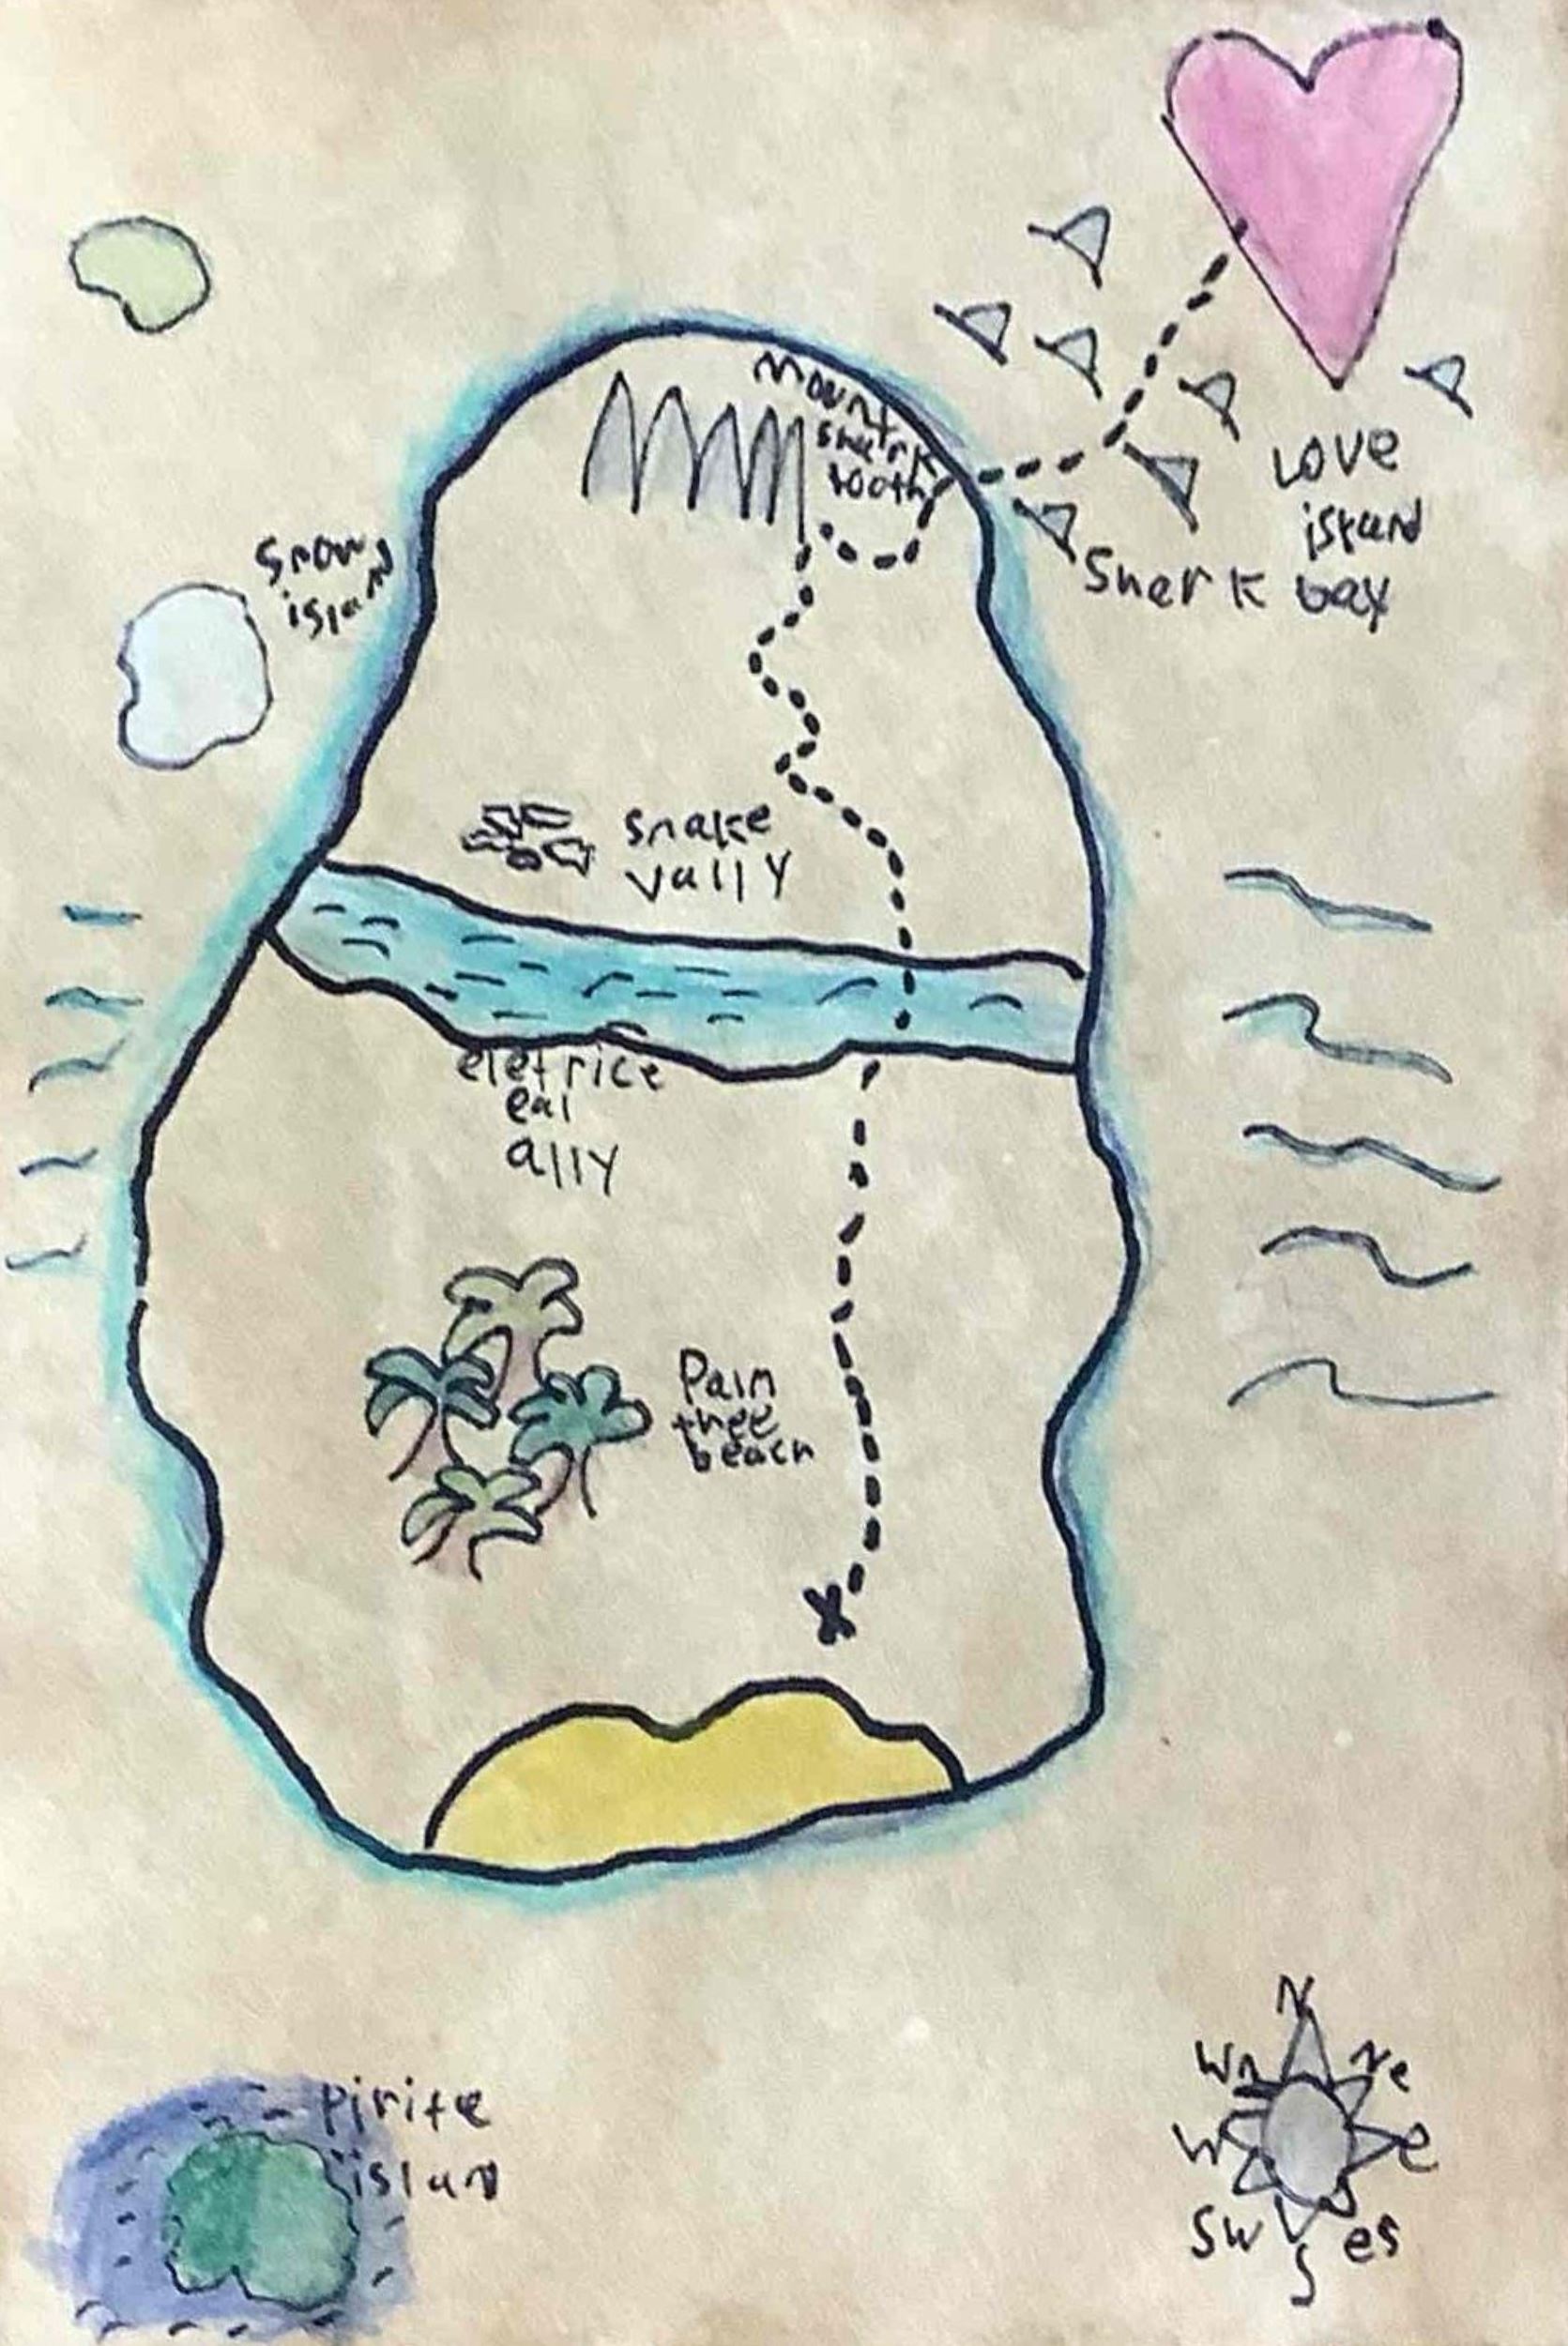 Mount
Shark
tooth
Snow
island
Love
island
Shark bay
Snake
vally
eletrice
eal
ally
Palm
thee
beach
X
pirite
islan
N
Wn
Ne
W
e
Sw
es
S